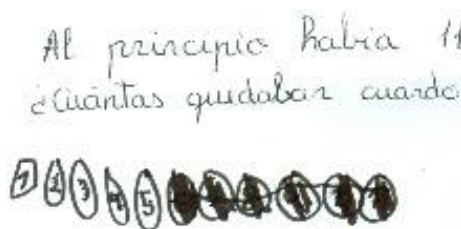 Al principio había 11
¿Cuántas quedaban cuando
1 2 3 4 5